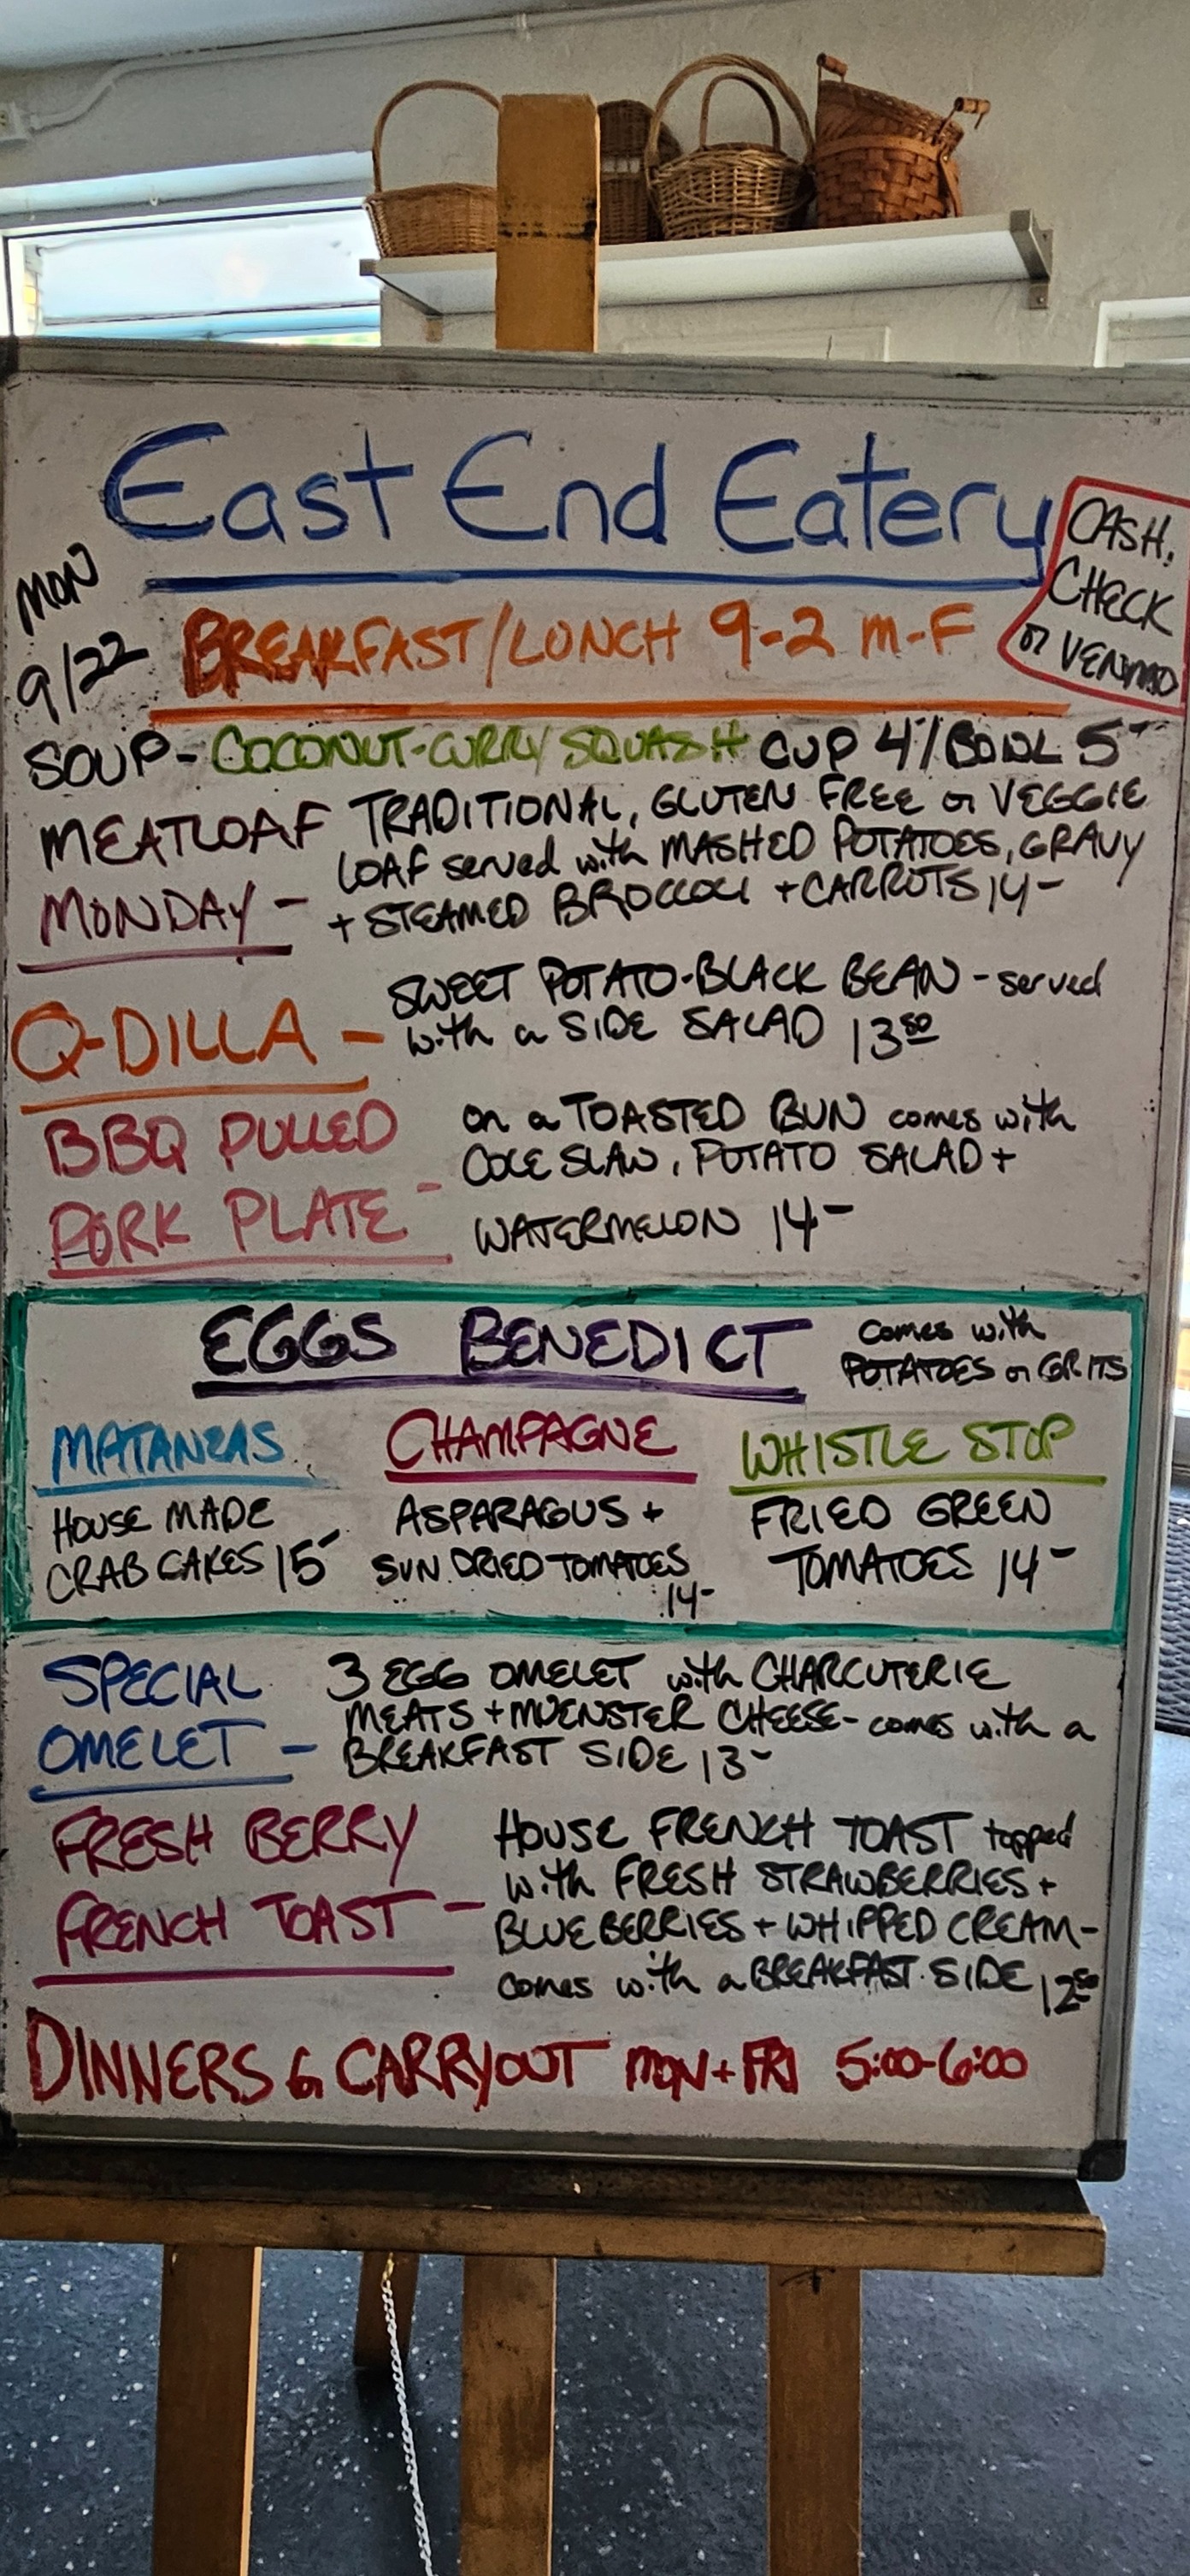 East End Eatery
CASH,
CHECK
or VENMO
MON
9/22
BREAKFAST/LUNCH 9-2 M-F
SOUP - COCONUT-CURRY SQUASH CUP 4-/BOWL 5-
MEATLOAF MONDAY -
TRADITIONAL, GLUTEN FREE or VEGGIE
LOAF served with MASHED POTATOES, GRAVY
+ STEAMED BROCCOLI + CARROTS 14-
Q-DILLA -
SWEET POTATO-BLACK BEAN - served
with a SIDE SALAD 13 50
BBQ PULLED
PORK PLATE -
on a TOASTED BUN comes with
COLE SLAW, POTATO SALAD +
WATERMELON 14-
EGGS BENEDICT
comes with
POTATOES or GRITS
MATANZAS
HOUSE MADE
CRAB CAKES 15-
CHAMPAGNE
ASPARAGUS +
SUN DRIED TOMATOES
14-
WHISTLE STOP
FRIED GREEN
TOMATOES 14-
SPECIAL
OMELET -
3 EGG OMELET with CHARCUTERIE
MEATS + MUENSTER CHEESE - comes with a
BREAKFAST SIDE 13-
FRESH BERRY
FRENCH TOAST -
HOUSE FRENCH TOAST topped
with FRESH STRAWBERRIES +
BLUEBERRIES + WHIPPED CREAM -
comes with a BREAKFAST SIDE 12 50
DINNERS & CARRYOUT MON + FRI 5:00-6:00